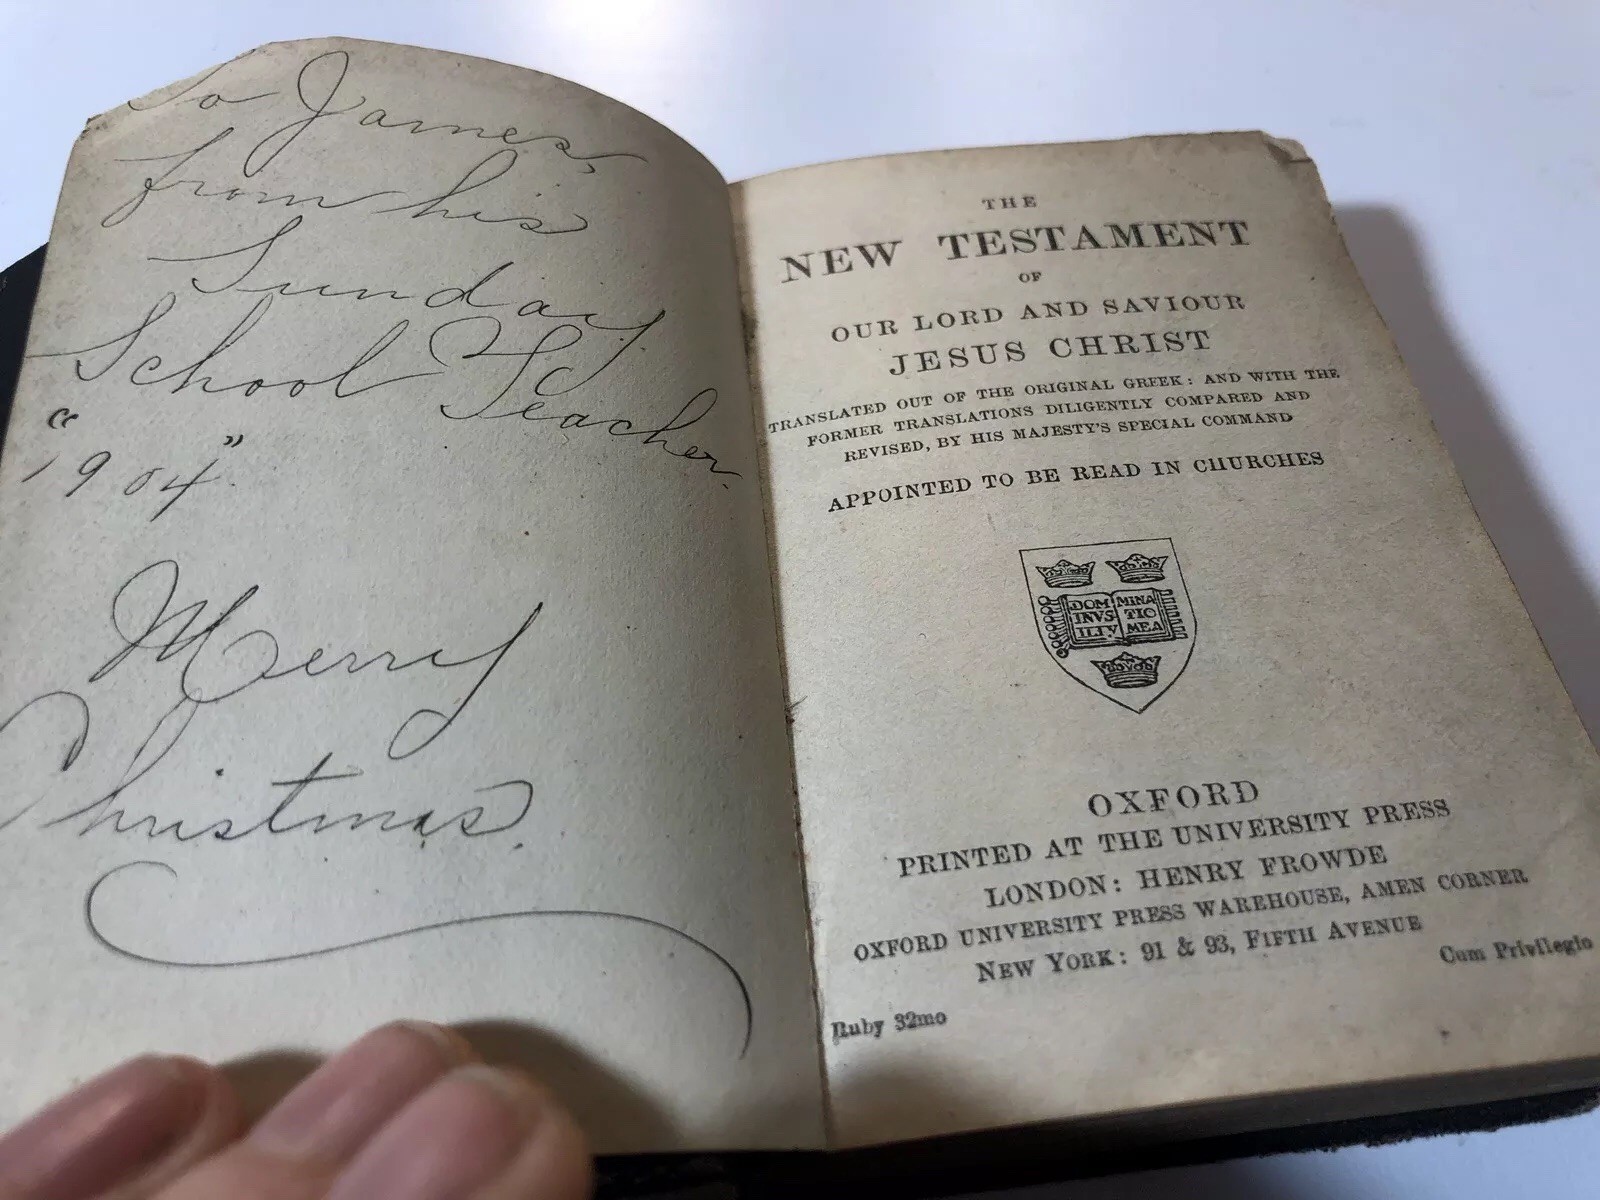 To James,
from his
Sunday
School Teacher.
"1904"
Merry
Christmas.
THE
NEW TESTAMENT
OF
OUR LORD AND SAVIOUR
JESUS CHRIST
TRANSLATED OUT OF THE ORIGINAL GREEK: AND WITH THE
FORMER TRANSLATIONS DILIGENTLY COMPARED AND
REVISED, BY HIS MAJESTY'S SPECIAL COMMAND
APPOINTED TO BE READ IN CHURCHES
DOM MINA
INVS TIO
ILLV MEA
OXFORD
PRINTED AT THE UNIVERSITY PRESS
LONDON: HENRY FROWDE
OXFORD UNIVERSITY PRESS WAREHOUSE, AMEN CORNER
NEW YORK: 91 & 93, FIFTH AVENUE
Cum Privilegio
Ruby 32mo